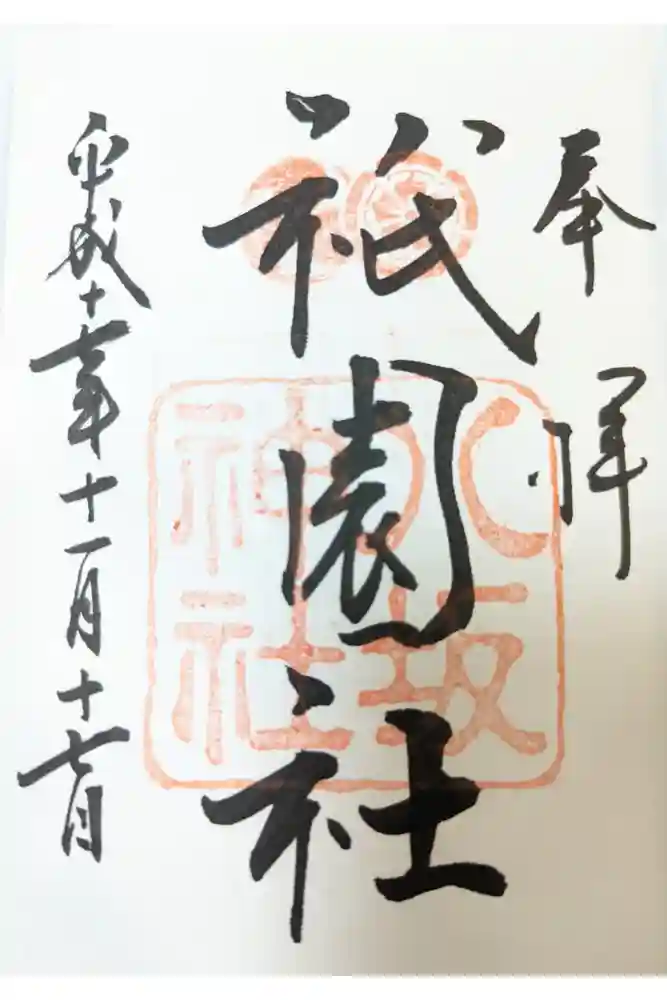 奉拝
祇園社
八坂
神社
平成十七年十一月十七日